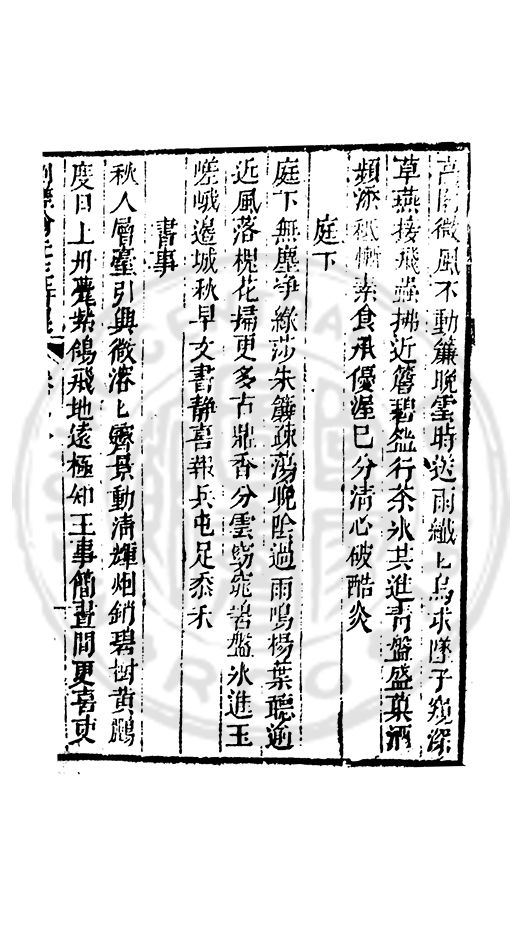 高閣微風不動簾晚雲時送雨纖纖烏求墜子窺深
草燕接飛蟲拂近簷碧盌行茶氷共進青盤盛菓酒
頻添秪慚素食承優渥已分清心破酷炎
庭下
庭下無塵淨綠莎朱簾疎蕩晚陰過雨鳴楊葉聽逾
近風落槐花掃更多古鼎香分雲窈窕碧盤氷進玉
嵯峨邊城秋早文書靜喜報兵屯足黍禾
書事
秋入層臺引興微溶溶霽景動清輝烟銷碧樹黃鸝
度日上丹甍紫鴿飛地遠極知王事簡晝間更喜吏